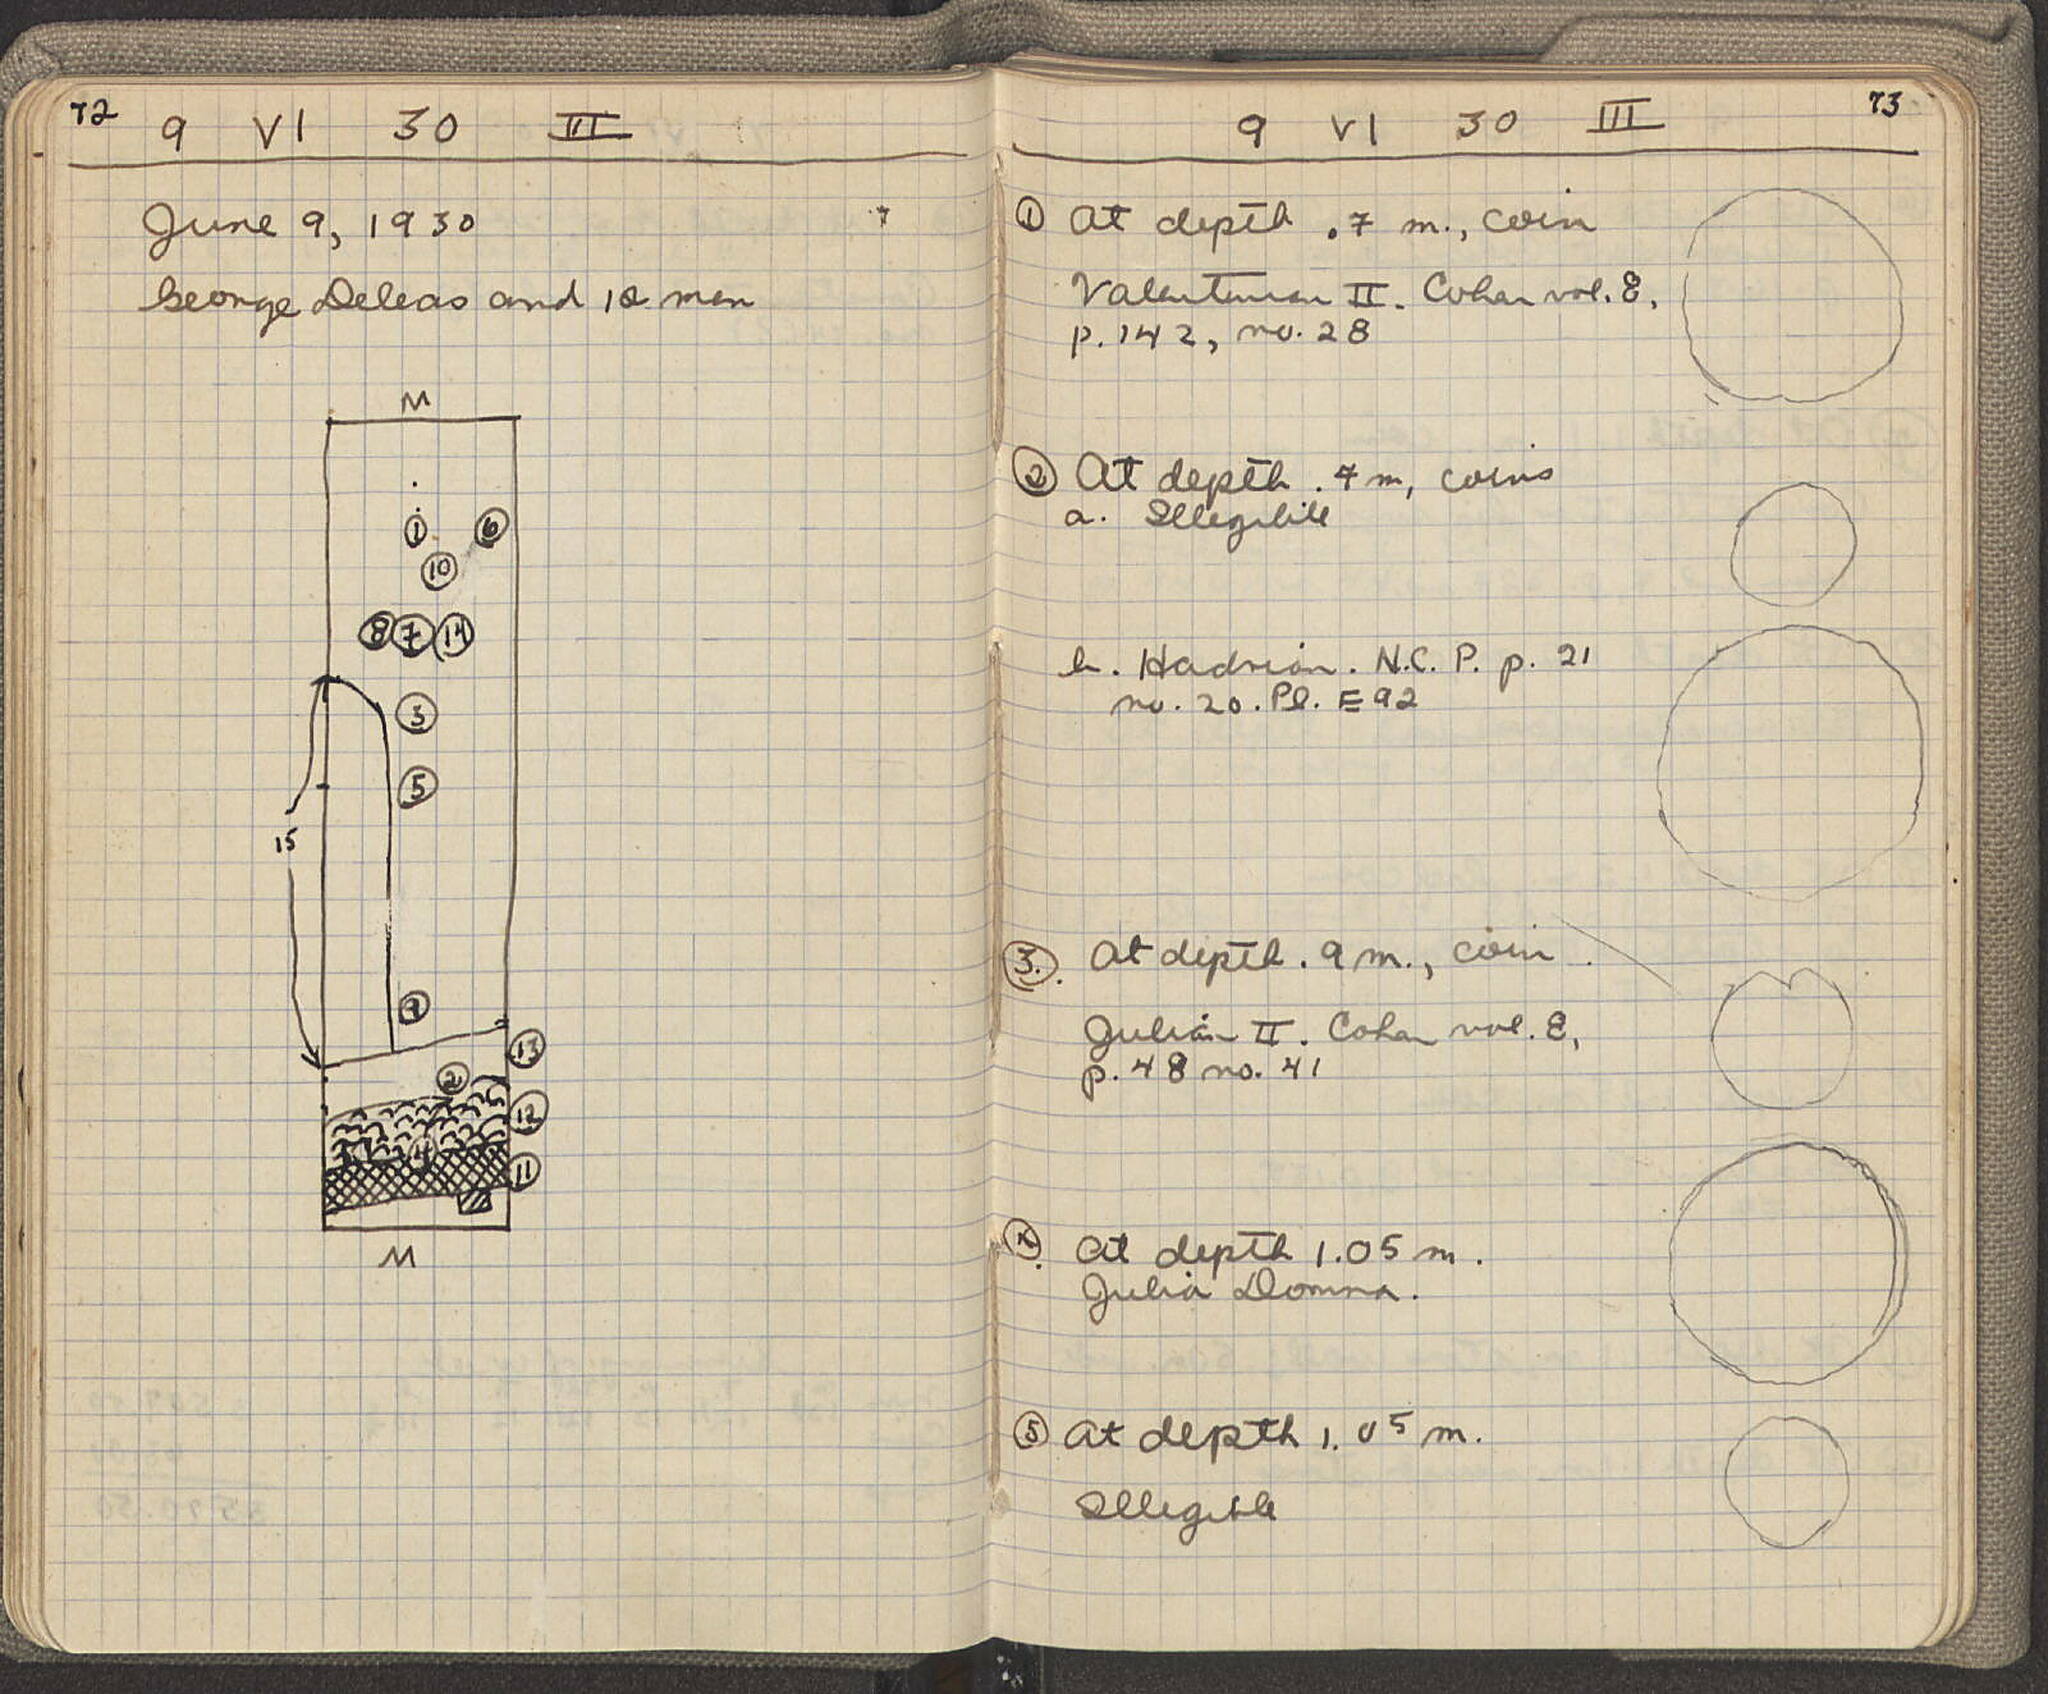 72
9 VI 30 III
June 9, 1930
George Deleas and 12 men
M
1
6
10
8 7 14
3
5
15
9
13
2
12
4
11
M
73
9 VI 30 III
① At depth .7 m., coin
Valentinian II. Cohen vol. 8,
p. 142, no. 28
② At depth .7 m, coins
a. Illegible
b. Hadrian. N.C. P. p. 21
no. 20. Pl. E 92
3. At depth .9 m., coin.
Julian II. Cohen vol. 8,
p. 48 no. 41
4. At depth 1.05 m.
Julia Domna.
⑤ At depth 1.05 m.
Illegible